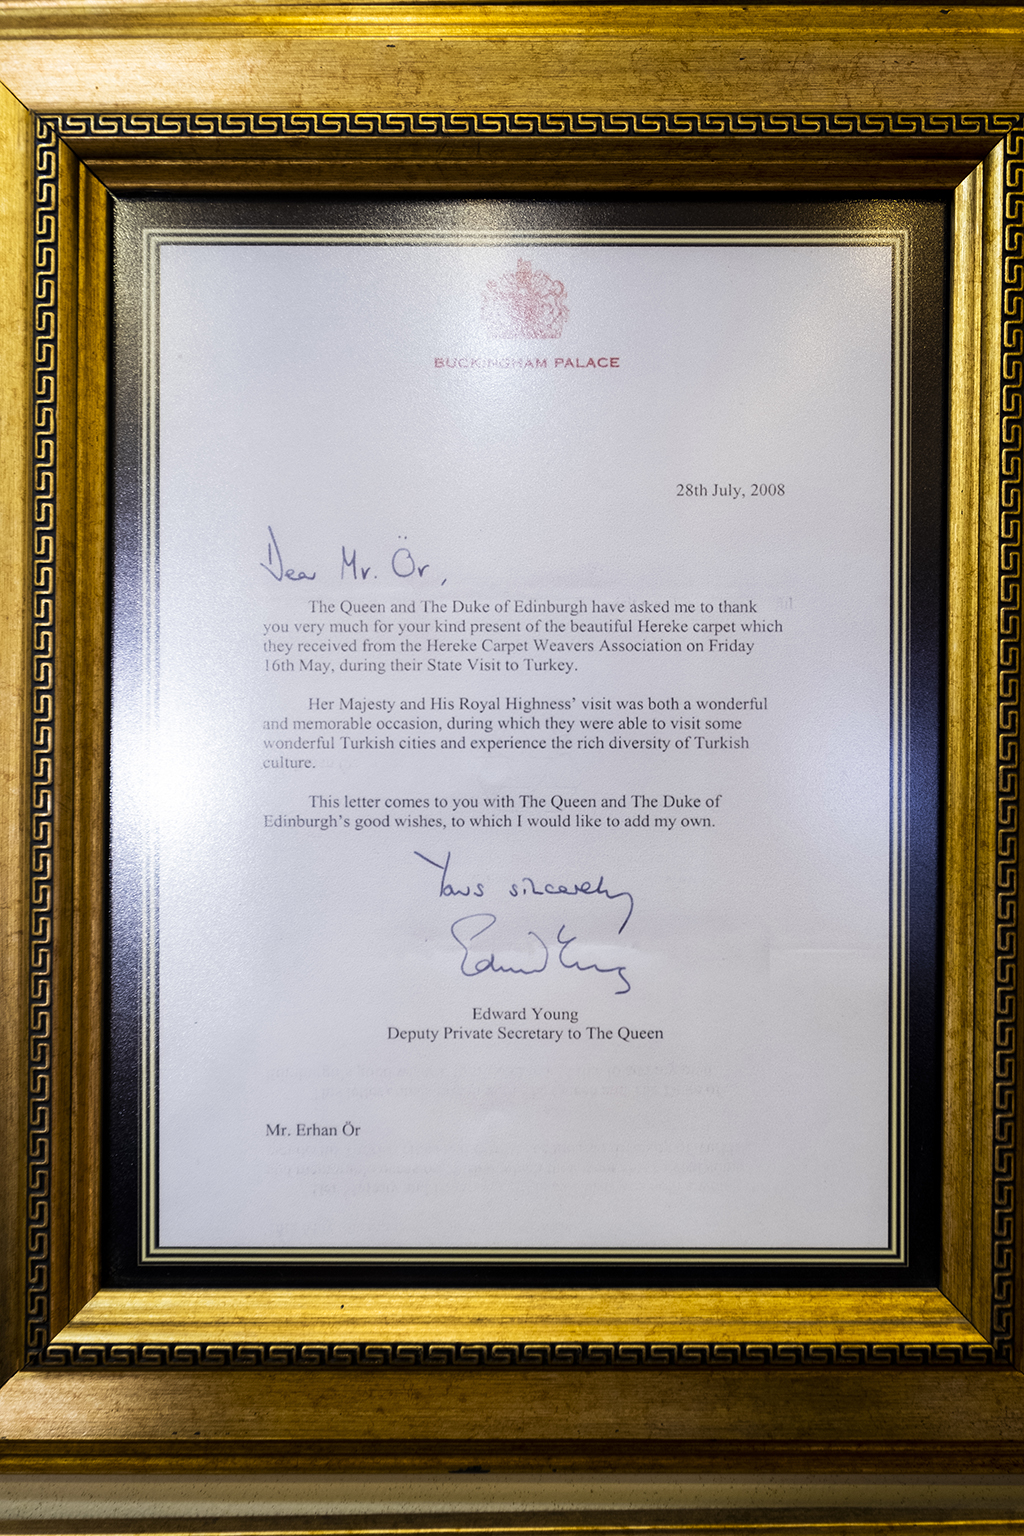 BUCKINGHAM PALACE
28th July, 2008
Dear Mr. Ör,
The Queen and The Duke of Edinburgh have asked me to thank
you very much for your kind present of the beautiful Hereke carpet which
they received from the Hereke Carpet Weavers Association on Friday
16th May, during their State Visit to Turkey.
Her Majesty and His Royal Highness' visit was both a wonderful
and memorable occasion, during which they were able to visit some
wonderful Turkish cities and experience the rich diversity of Turkish
culture.
This letter comes to you with The Queen and The Duke of
Edinburgh's good wishes, to which I would like to add my own.
Yours sincerely
Edward Young
Edward Young
Deputy Private Secretary to The Queen
Mr. Erhan Ör